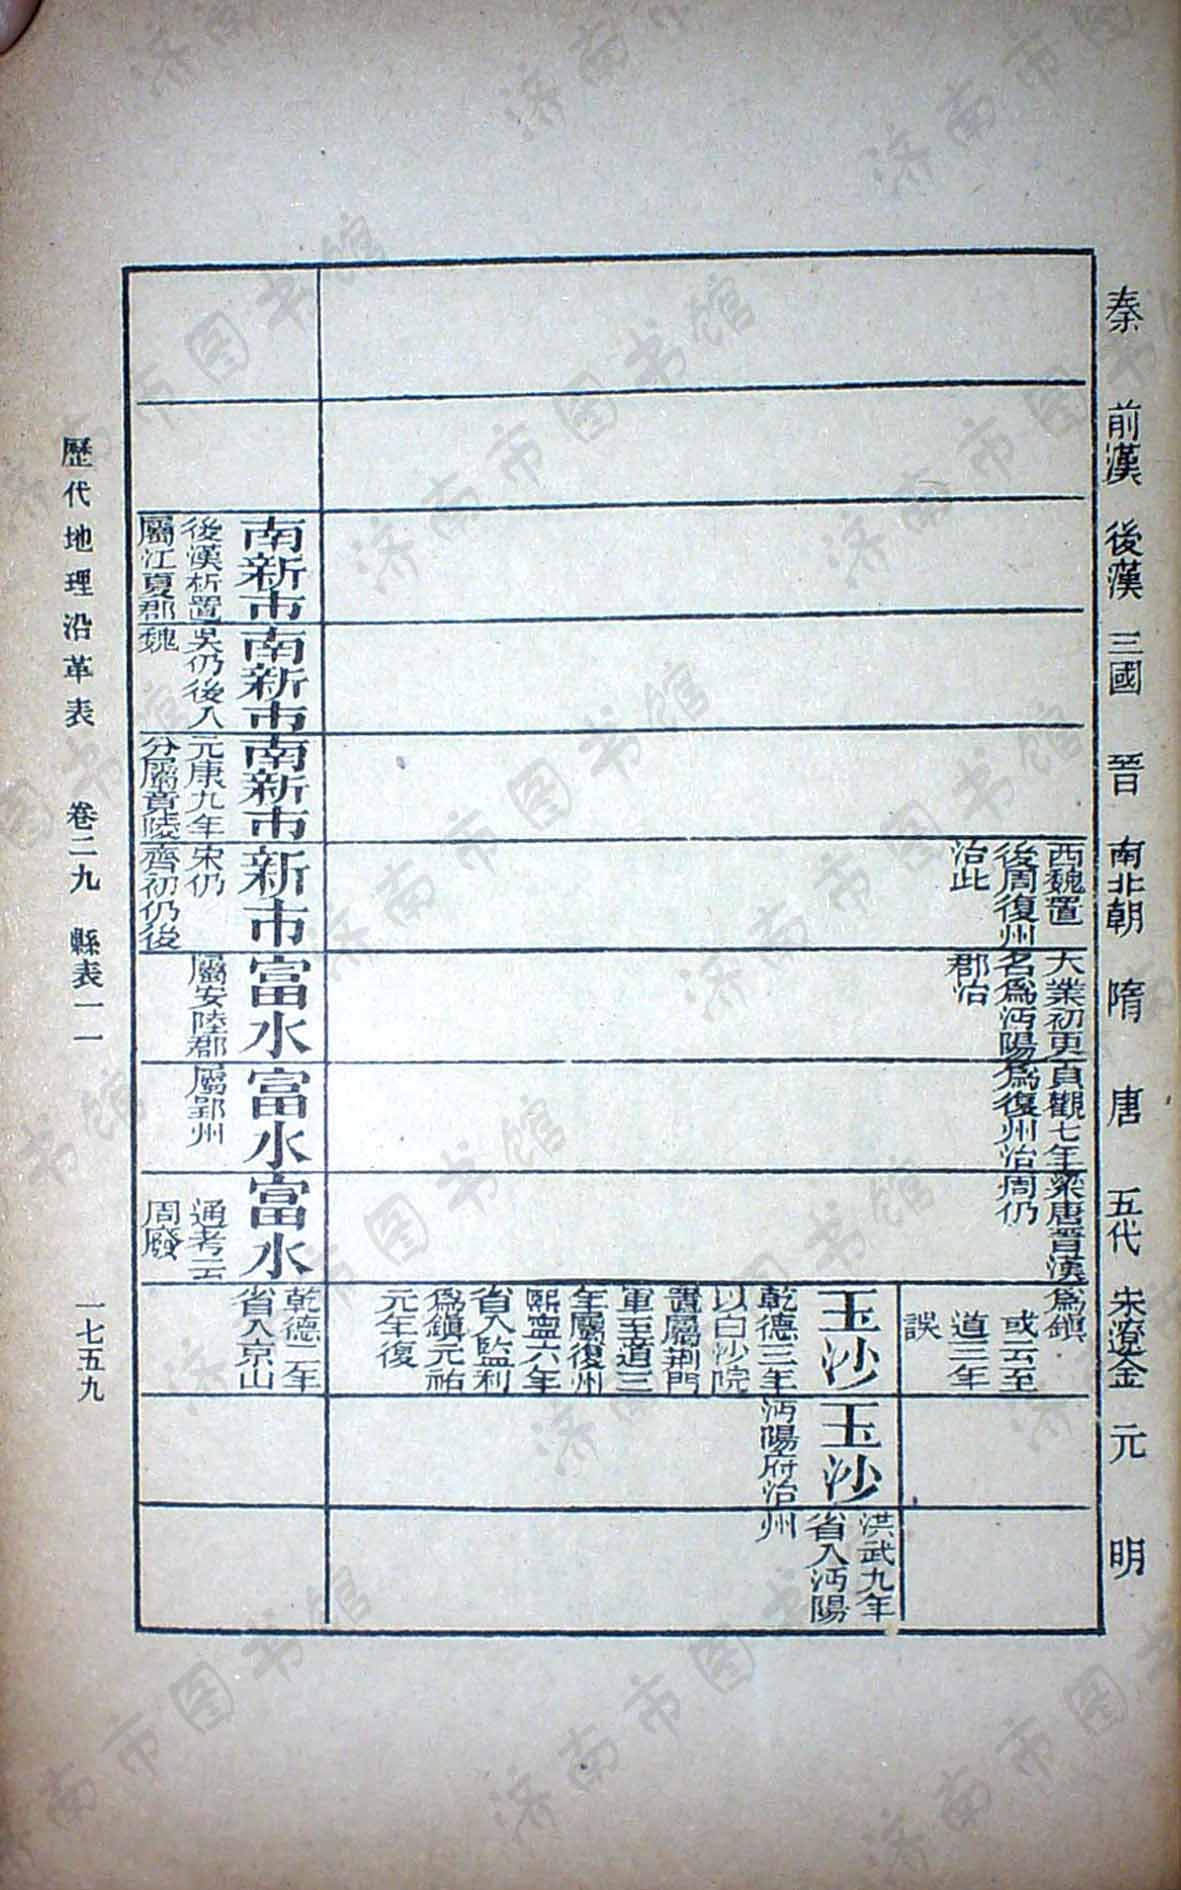 秦
前漢
後漢
三國
晉
南北朝
隋
唐
五代
宋遼金
元
明
西魏置
後周復州
治此
大業初更
名爲沔陽
郡治
貞觀七年
爲復州治
梁唐晉漢
周仍
爲鎮
或云至
道三年
誤
玉沙
乾德三年
以白沙院
置屬荆門
軍至道三
年屬復州
熙寧六年
省入監利
爲鎮元祐
元年復
玉沙
沔陽府治
洪武九年
省入沔陽
州
南新市
後漢析置
屬江夏郡
南新市
吳仍後入
魏
南新市
元康九年
分屬竟陵
新市
宋仍
齊初仍後
富水
屬安陸郡
富水
屬郢州
富水
通考云
周廢
乾德二年
省入京山
歷代地理沿革表 卷二九 縣表一一 一七五九
济南市图书馆